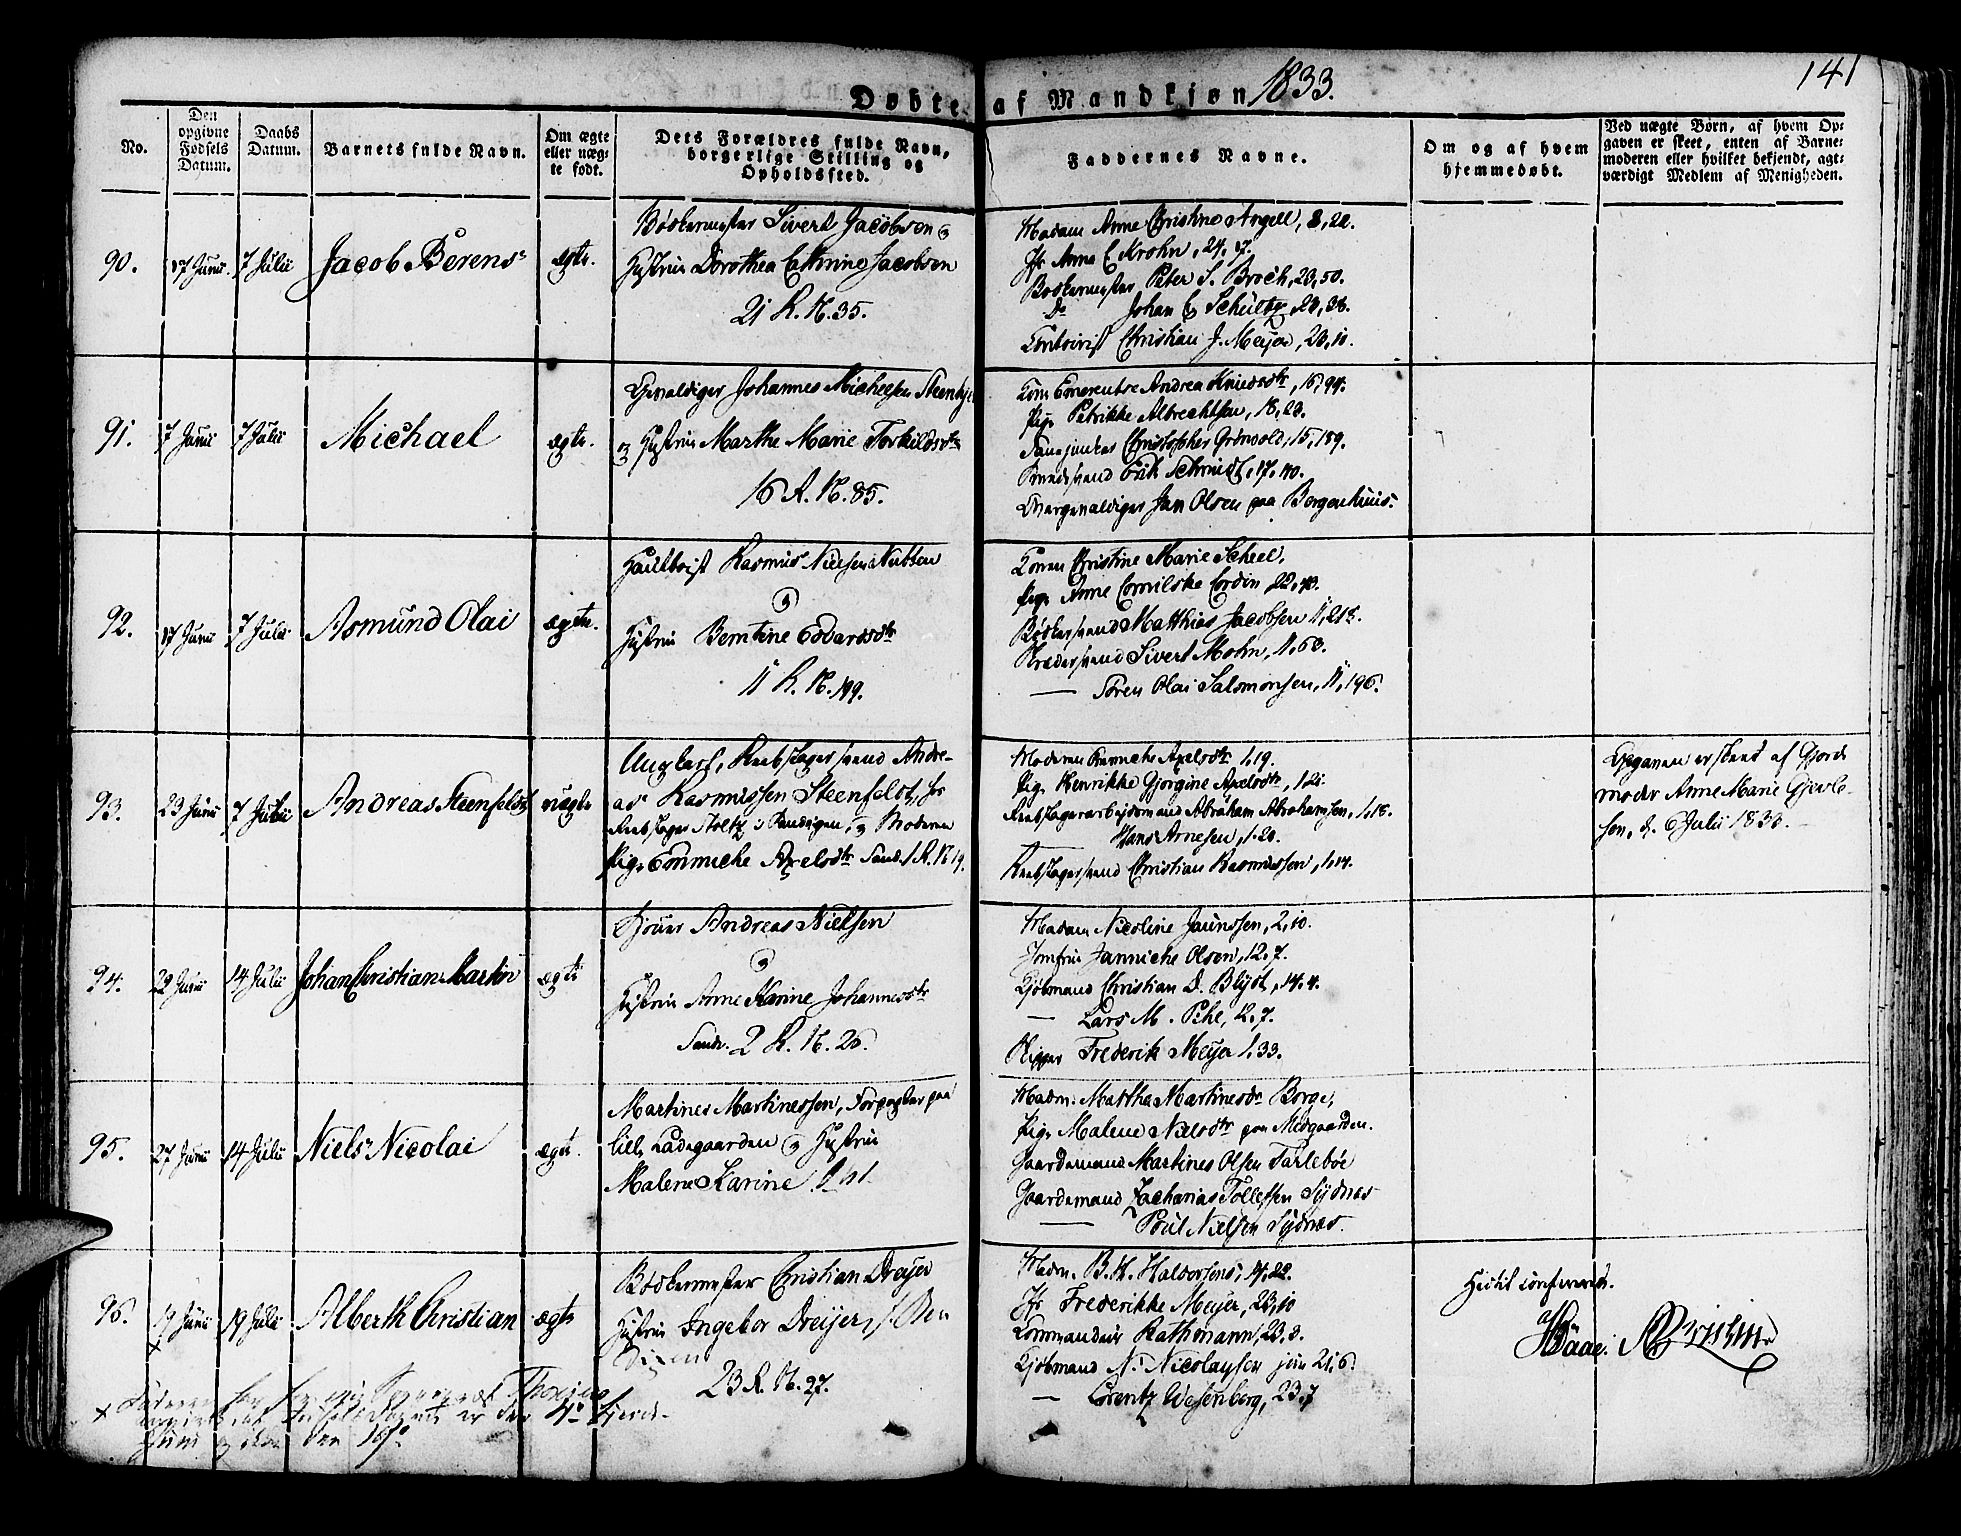 141
Døbte af Mandkjøn 1833.
No.
Den opgivne Fødsels Datum.
Daabs Datum.
Barnets fulde Navn.
Om ægte eller uæg: te født.
Dets Forældres fulde Navn, borgerlige Stilling og Opholdssted.
Faddernes Navne.
Om og af hvem hjemmedøbt.
Ved uægte Børn, af hvem Op:
gaven er skeet, enten af Barne:
moderen eller hvilket bekjendt, agt:
værdigt Medlem af Menigheden.
90. 17 Junii 7 Julii Jacob Berens ægte.
Bødkermester Sivert Jacobsen og
Hustrue Dorothea Cathrine Jacobsen
21 R. N. 35.
Madam Anne Christine Angell, 8, 20.
Jfr Anna C. Krohn, 24. 17.
Bødkermester Peter S. Broch, 20, 50.
Do Johan C. Schultz, 20, 38.
Contoirist Christian J. Meyer, 20, 10.
91. 7 Junii 7 Julii Michael ægte.
Gevaldiger Johannes Michelsen
og Hustrue Marthe Marie Torkildsdtr
16 R. N. 85.
Andrea
Pige Petrikke Albrechtsen, 18, 20.
Christopher Grønvold, 15, 189.
Erik Schmidt, 17, 40.
Jan Olsen paa Bergenhuus.
92. 17 Junii 7 Julii Asmund Olai ægte.
Hautboist Rasmus Nielsen Nutten
og
Hustrue Berntine Edvardsdtr
11 R. N. 199.
Konen Christine Marie Scheel,
Pige Anne Cordin 22, 40.
Bødkersvend Matthias Jacobsen 11, 218.
Sivert Mohn, 11, 68.
— Søren Olai Salomonsen, 11, 196.
93. 23 Junii 7 Julii Andreas Steenfeldt uægte
Ungkarl, Rebslagersvend Andre-
as Rasmussen Steenfeldt, hos
Rebslager Stoltz i Sandvigen, og Moderen
Pige Emmiche Axelsdtr Sandv. 1 R. N. 19.
Moderen Emmiche Axelsdtr 1, 19.
Pige Henrikke Gjørgine Axelsdtr, 1, 21.
Rebslagerarbeidsmand Abraham Abrahamsen, 1, 18.
Hans Arnesen, 1. 20.
Rebslagersvend Christian Rasmussen, 1, 14.
Opgaven er skeet af Gjord-
moder Anne Marie
sen, d. 6 Julii 1833.
94. 22 Junii 14 Julii Johan Christian Martin ægte
Andreas Nielsen
og
Hustrue Anne Karine Johannesdtr
Sandv. 2 R. N. 26.
Madam Nicoline Jaunssen, 2, 10.
Jomfrue Janniche Olsen, 12, 7.
Kjøbmand Christian D. Blyst, 14. 4.
— Lars M. Pihl, 12. 7.
Skipper Frederik Meyer 1. 33.
95. 27 Junii 14 Julii Niels Nicolai ægte.
Martines Martinessen, Forpagter paa
lille Ladegaarden og Hustrue
Malene Karine
Madm. Martha Martinesdtr Borge,
Pige Malene Nielsdtr paa Midgaarden.
Gaardmand Martines Olsen Tarlebøe
Gaardmand Zacharias Tollefsen Sydnæs
— Poul Nielsen Sydnæs.
96. 19 Junii 19 Julii Alberth Christian ægte
Bødkermester Christian Dreyer
Hustrue Ingebor Dreyer, f. Ben
dixen
23 R. N. 27.
Madm. B. H. Halvorsens, 14, 22.
Jfr. Frederikke Meyer, 23, 10
Commandeur Rathmann, 23. 8.
Kjøbmand N. Nicolaysen jun 21, 6.
— Lorentz Wesenberg, 23. 7
Hidtil confereret.